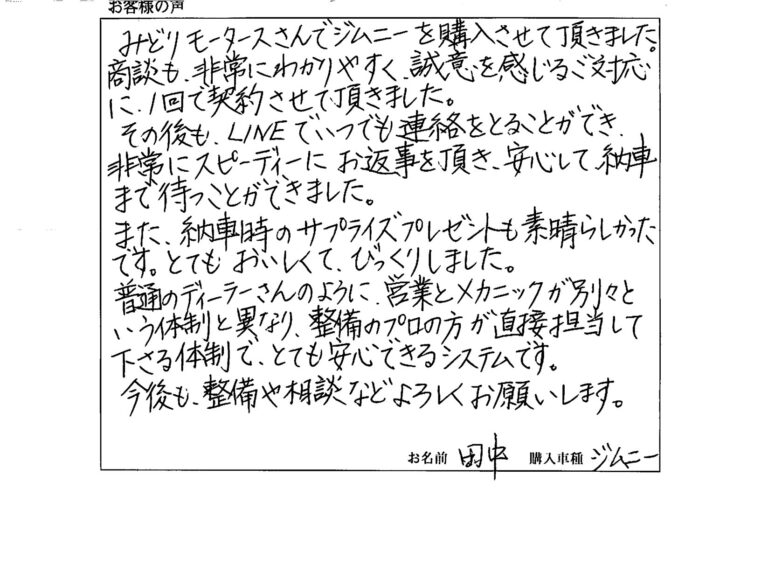 お客様の声
みどりモータースさんでジムニーを購入させて頂きました。
商談も、非常にわかりやすく、誠意を感じるご対応
に、1回で契約させて頂きました。
その後も、LINEでいつでも連絡をとることができ、
非常にスピーディーにお返事を頂き、安心して、納車
まで待つことができました。
また、納車時のサプライズプレゼントも素晴らしかった
です。とてもおいしくて、びっくりしました。
普通のディーラーさんのように、営業とメカニックが別々と
いう体制と異なり、整備のプロの方が直接担当して
下さる体制で、とても安心できるシステムです。
今後も、整備や相談などよろしくお願いします。
お名前 田中 購入車種 ジムニー